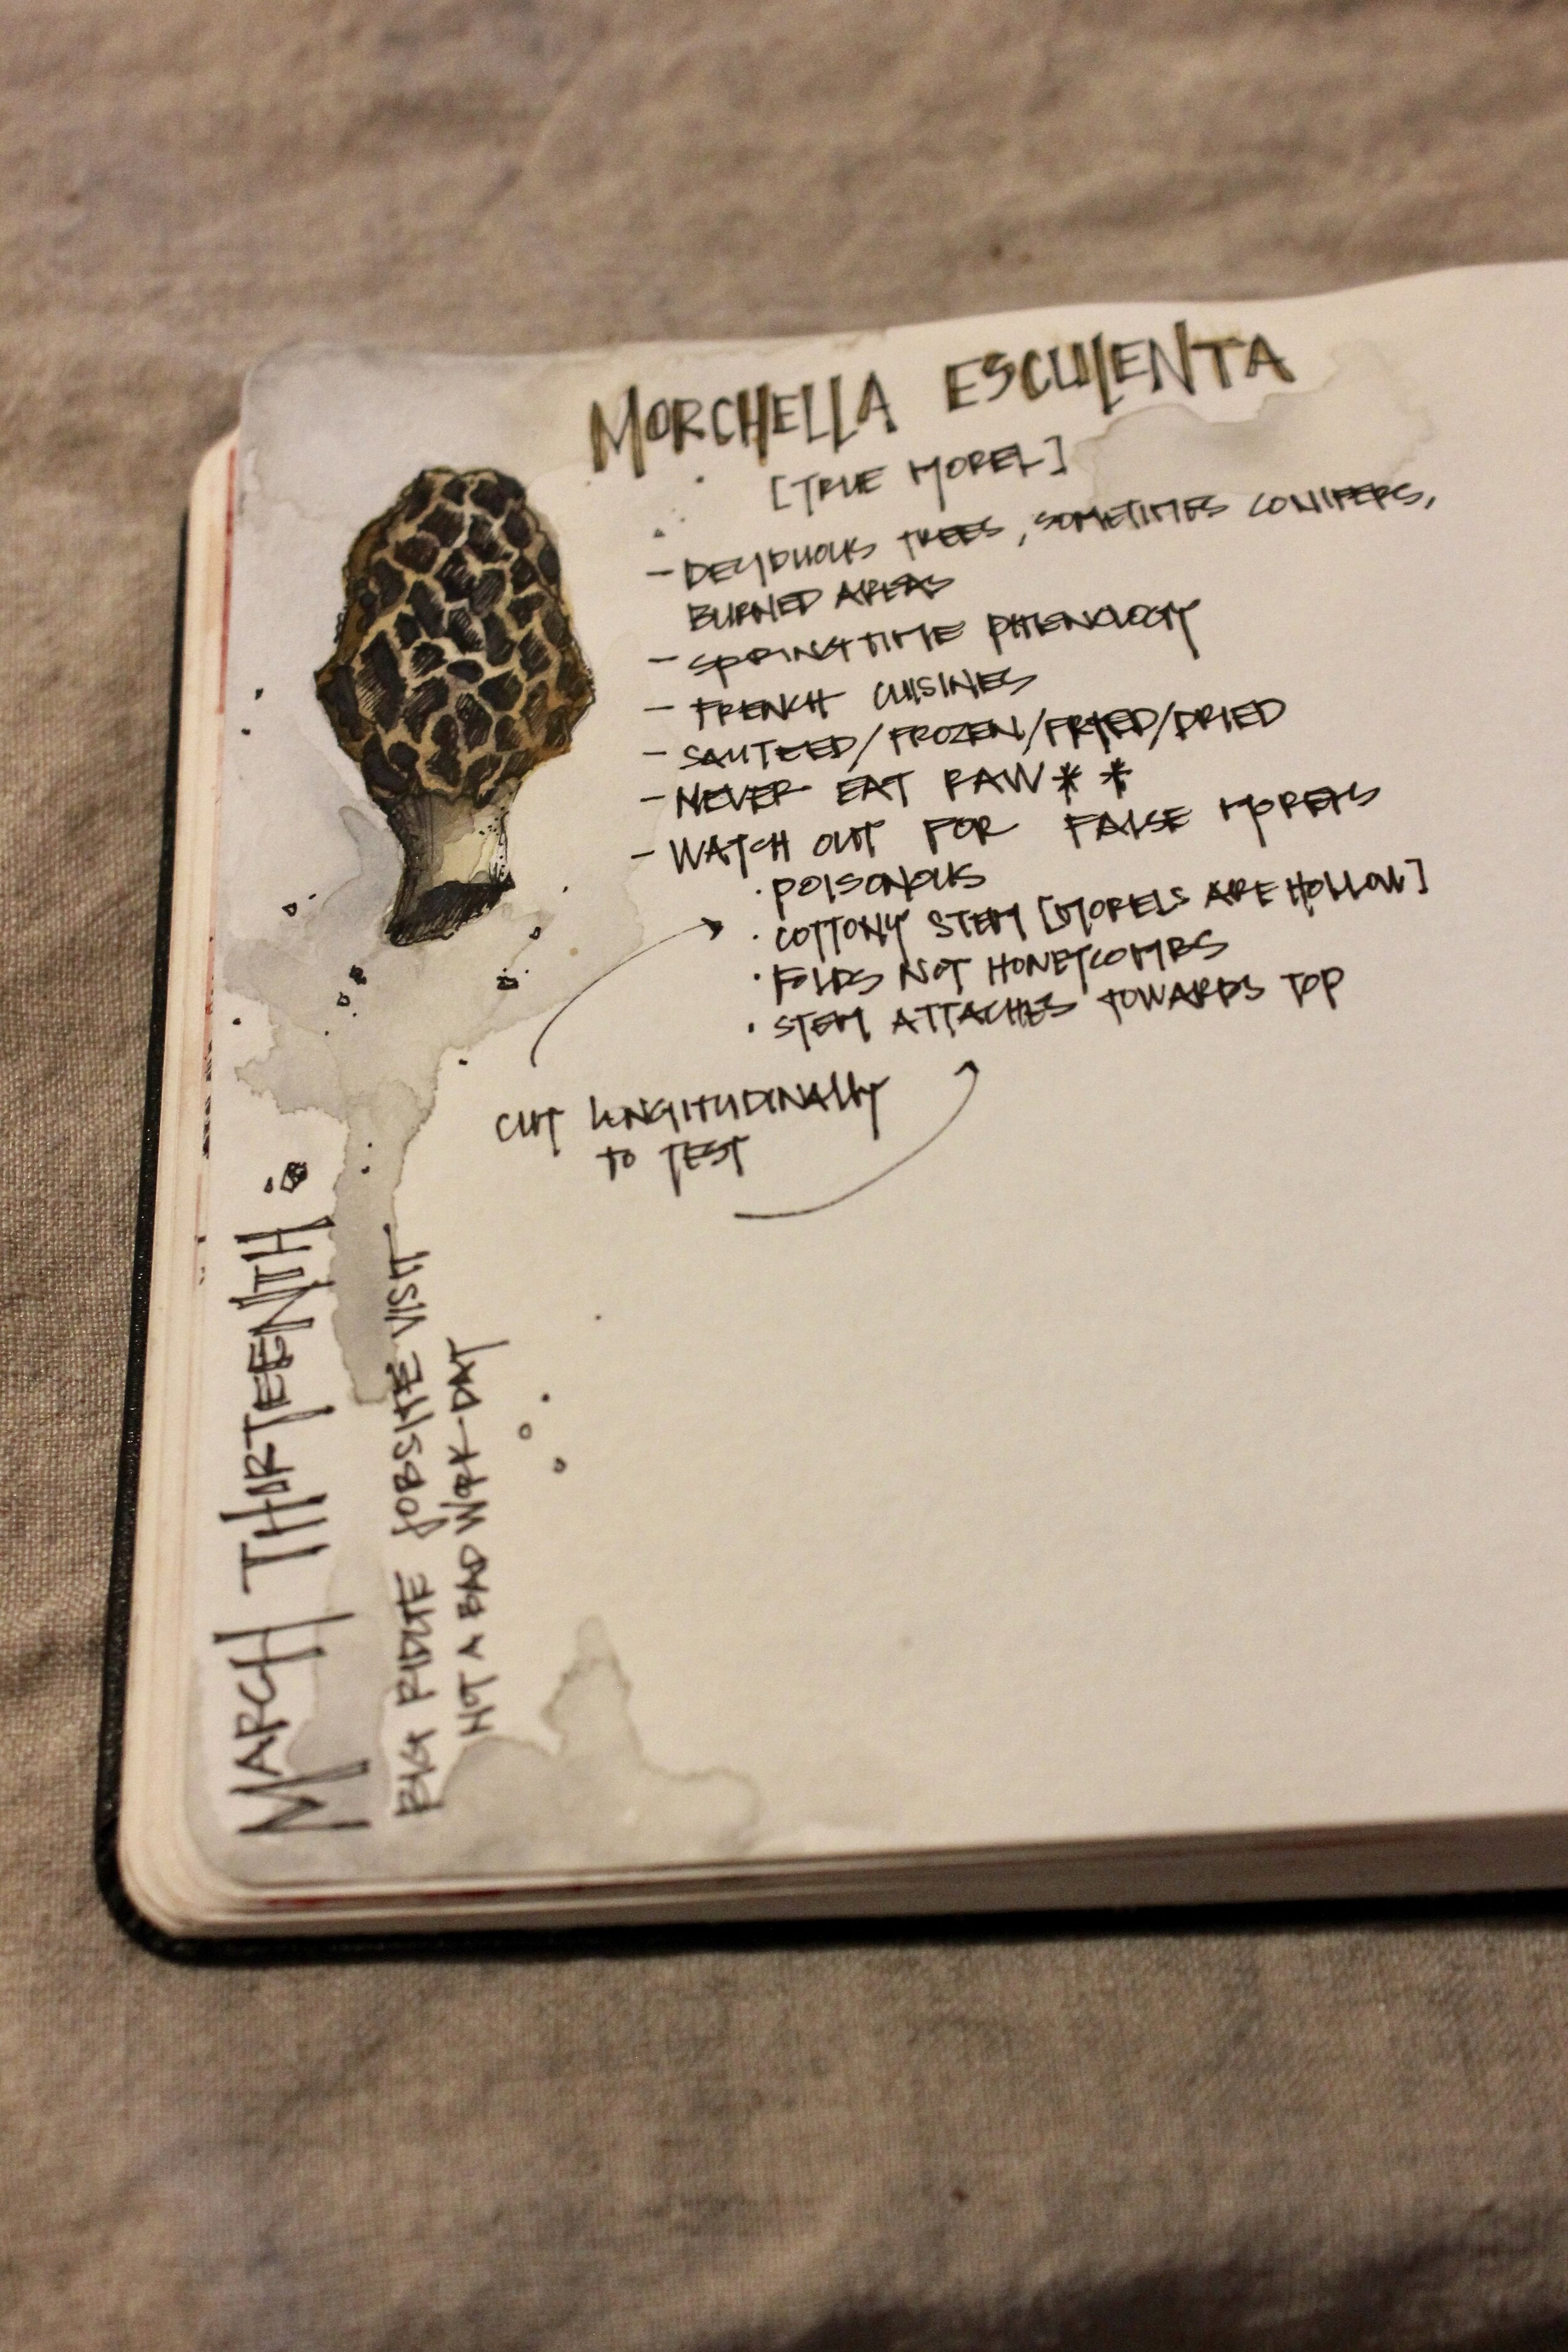 MORCHELLA ESCULENTA
[TRUE MOREL]
- DECIDUOUS TREES, SOMETIMES CONIFERS,
BURNED AREAS
- SPRINGTIME PHENOLOGY
- FRENCH CUISINES
- SAUTEED/FROZEN/FRIED/DRIED
- NEVER EAT RAW * *
- WATCH OUT FOR FALSE MORELS
· POISONOUS
· COTTONY STEM [MORELS ARE HOLLOW]
· FOLDS NOT HONEYCOMBS
· STEM ATTACHES TOWARDS TOP
CUT LONGITUDINALLY
TO TEST
MARCH THIRTEENTH
BIG RIDGE JOBSITE VISIT
NOT A BAD WORK-DAY